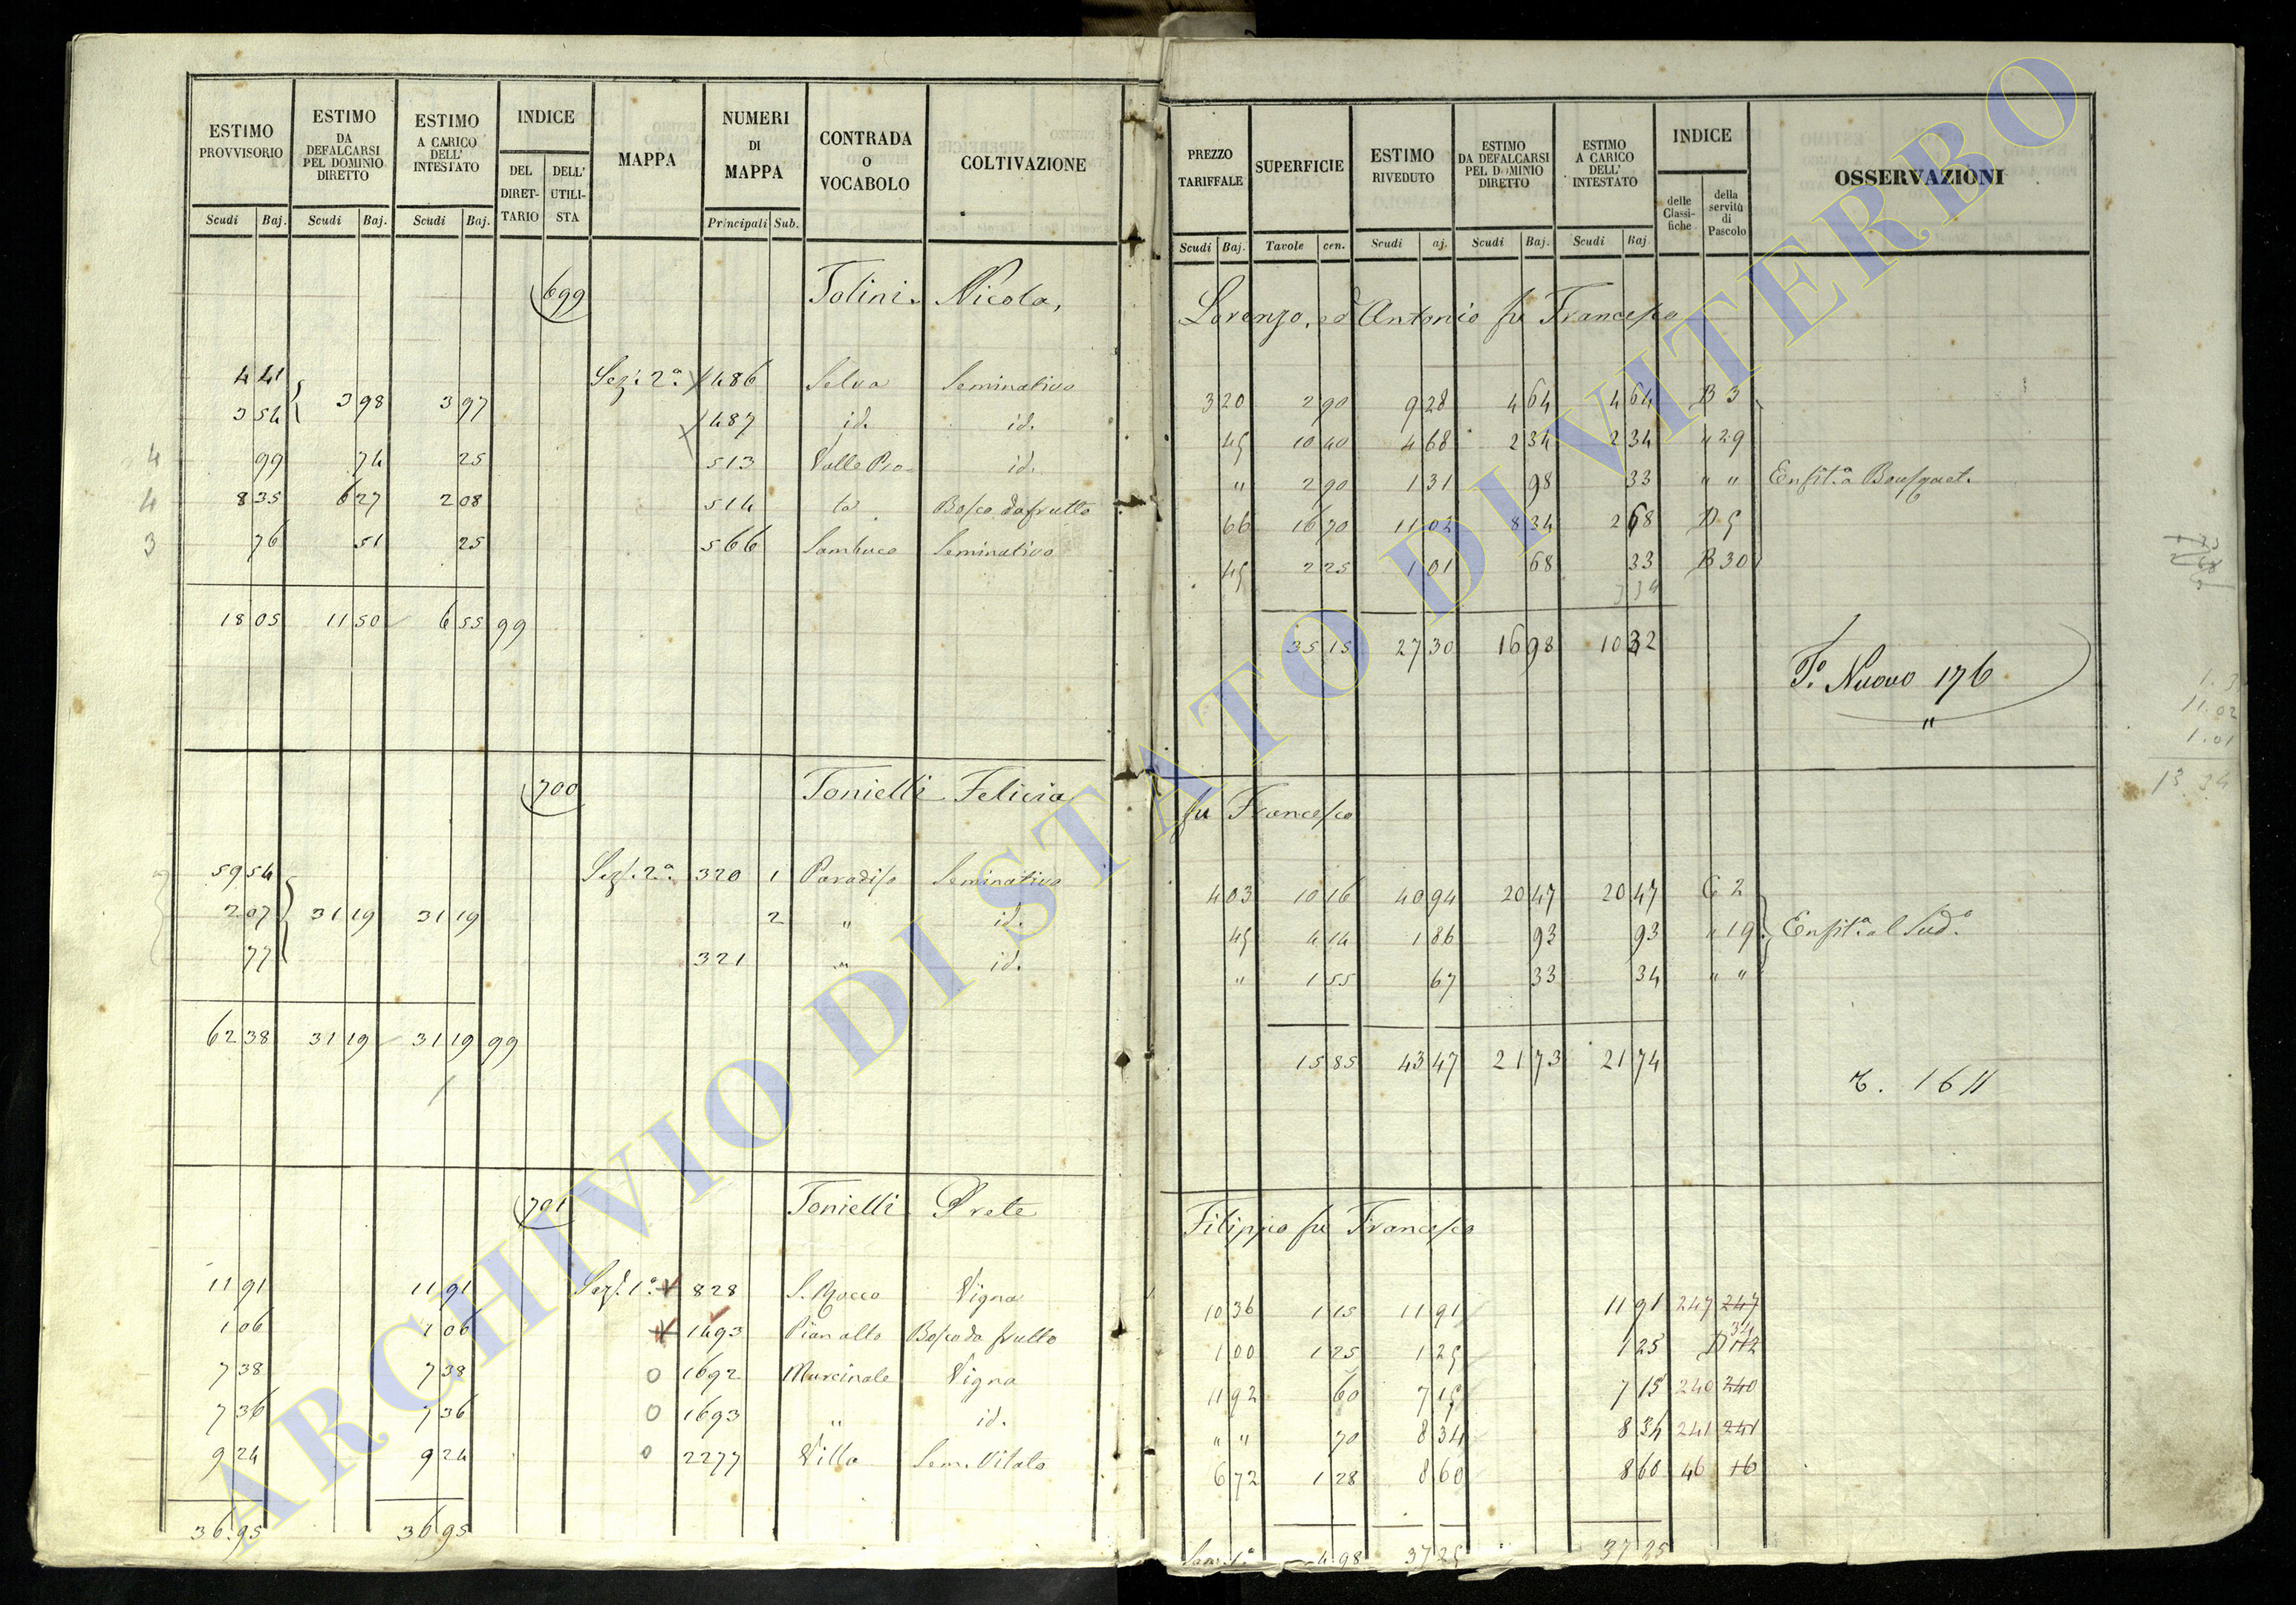 ESTIMO PROVVISORIO | ESTIMO DA DEFALCARSI PEL DOMINIO DIRETTO | ESTIMO A CARICO DELL' INTESTATO | INDICE DEL DIRETTARIO | DELL' UTILISTA | MAPPA | NUMERI DI MAPPA | CONTRADA O VOCABOLO | COLTIVAZIONE
Scudi | Baj. | Scudi | Baj. | Scudi | Baj. | Principali | Sub.
699 Tolini Nicola,
4 41 | Sez. 2a | 1486 | Selva | Seminativo
3 54 | 3 98 | 3 97 | 1487 | id. | id.
4 | 99 | 74 | 25 | 513 | Valle Pia= | id.
4 | 8 35 | 6 27 | 2 08 | 514 | ta | Bosco da frutto
3 | 76 | 51 | 25 | 566 | Sambuco | Seminativo
18 05 | 11 50 | 6 55 | 99
700 Tonielli Felicia
59 54 | Sez. 2a. | 320 | 1 | Paradiso | Seminativo
2 07 | 31 19 | 31 19 | 2 | " | id.
77 | 321 | " | id.
62 38 | 31 19 | 31 19 | 99
701 Tonielli Prete
11 91 | 11 91 | Sez. 1a. | 828 | S. Rocco | Vigna
1 06 | 1 06 | 1493 | Pian alto | Bosco da frutto
7 38 | 7 38 | 0 | 1692 | Murcinale | Vigna
7 36 | 7 36 | 0 | 1693 | " | id.
9 24 | 9 24 | 0 | 2277 | Villa | Sem. Vitato
36 95 | 36 95
PREZZO TARIFFALE | SUPERFICIE | ESTIMO RIVEDUTO | ESTIMO DA DEFALCARSI PEL DOMINIO DIRETTO | ESTIMO A CARICO DELL' INTESTATO | INDICE delle Classifiche | della servitù di Pascolo | OSSERVAZIONI
Scudi | Baj. | Tavole | cen. | Scudi | aj. | Scudi | Baj. | Scudi | Baj.
Lorenzo, ed Antonio fu Francesco
3 20 | 2 90 | 9 28 | 4 64 | 4 64 | B 3
45 | 10 40 | 4 68 | 2 34 | 2 34 | " 29
" | 2 90 | 1 31 | 98 | 33 | " " | Enfit.a Bousquet.
66 | 16 70 | 11 02 | 8 34 | 2 68 | D 5
45 | 2 25 | 1 01 | 68 | 33 | B 30
3 34
35 15 | 27 30 | 16 98 | 10 32
F.o Nuovo 176
"
11.02
1.01
13.34
fu Francesco
4 03 | 10 16 | 40 94 | 20 47 | 20 47 | C 2
45 | 4 14 | 1 86 | 93 | 93 | " 19 | Enfit.a al Sud.o
" | 1 55 | 67 | 33 | 34 | " "
15 85 | 43 47 | 21 73 | 21 74
Filippo fu Francesco
10 36 | 1 15 | 11 91 | 11 91 | 247 | 247
34
1 00 | 1 25 | 1 25 | 1 25
11 92 | 60 | 7 15 | 7 15 | 240 | 240
" " | 70 | 8 34 | 8 34 | 241 | 241
6 72 | 1 28 | 8 60 | 8 60 | 46
4 98 | 37 25 | 37 25
ARCHIVIO DI STATO DI VITERBO